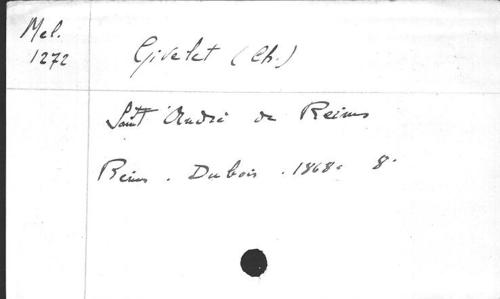 Mel.
1272
Givelet (Ch.)
Saint André de Reims
Reims. Dubois. 1868. 8°